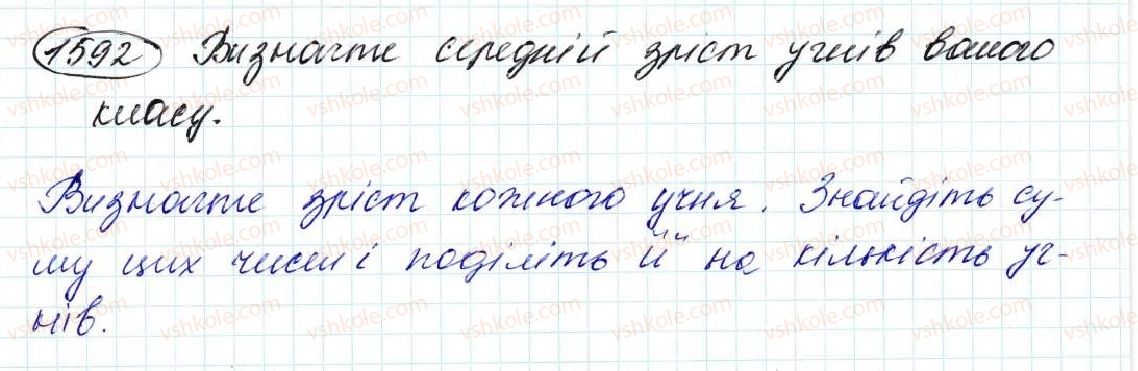 1592 Визначте середній зріст учнів вашого
класу.
Визначте зріст кожного учня. Знайдіть су-
му цих чисел і поділіть її на кількість уч-
нів.